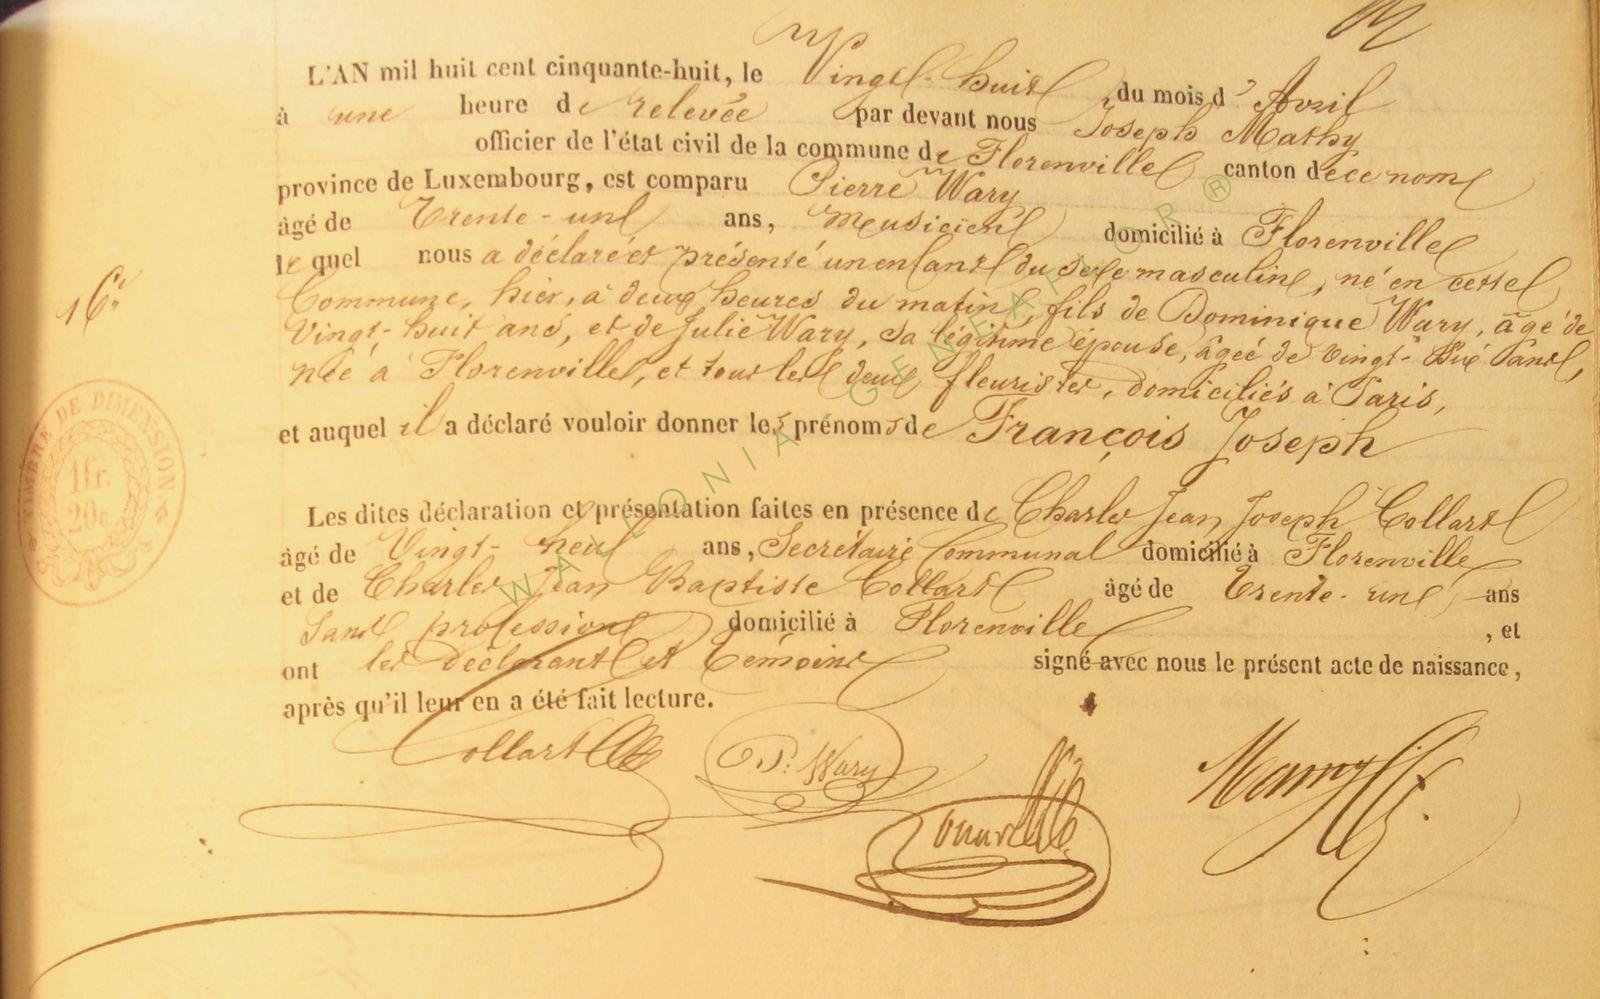 L'AN mil huit cent cinquante-huit, le Vingt-huit du mois d'Avril
à une heure de relevée par devant nous Joseph Mathy
officier de l'état civil de la commune de Florenville canton de ce nom
province de Luxembourg, est comparu Pierre Wary
âgé de Trente-un ans, Musicien domicilié à Florenville
lequel nous a déclaré et présenté un enfant du sexe masculin, né en cette
16e
Commune, hier, à deux heures du matin, fils de Dominique Wary, âgé de
Vingt-huit ans, et de Julie Wary, sa légitime épouse, âgée de vingt-six ans,
née à Florenville, et tous les deux fleuristes, domiciliés à Paris,
et auquel il a déclaré vouloir donner les prénoms de François Joseph
TIMBRE DE DIMENSION
1fr.
20c.
Les dites déclaration et présentation faites en présence de Charles Jean Joseph Collart
âgé de Vingt-neuf ans, Secrétaire Communal domicilié à Florenville
et de Charles Jean Baptiste Collart âgé de Trente-un ans
Sans profession domicilié à Florenville, et
ont les déclarant et témoins signé avec nous le présent acte de naissance,
après qu'il leur en a été fait lecture.
Collart P. Wary
WALLONIA GENEALOR ®